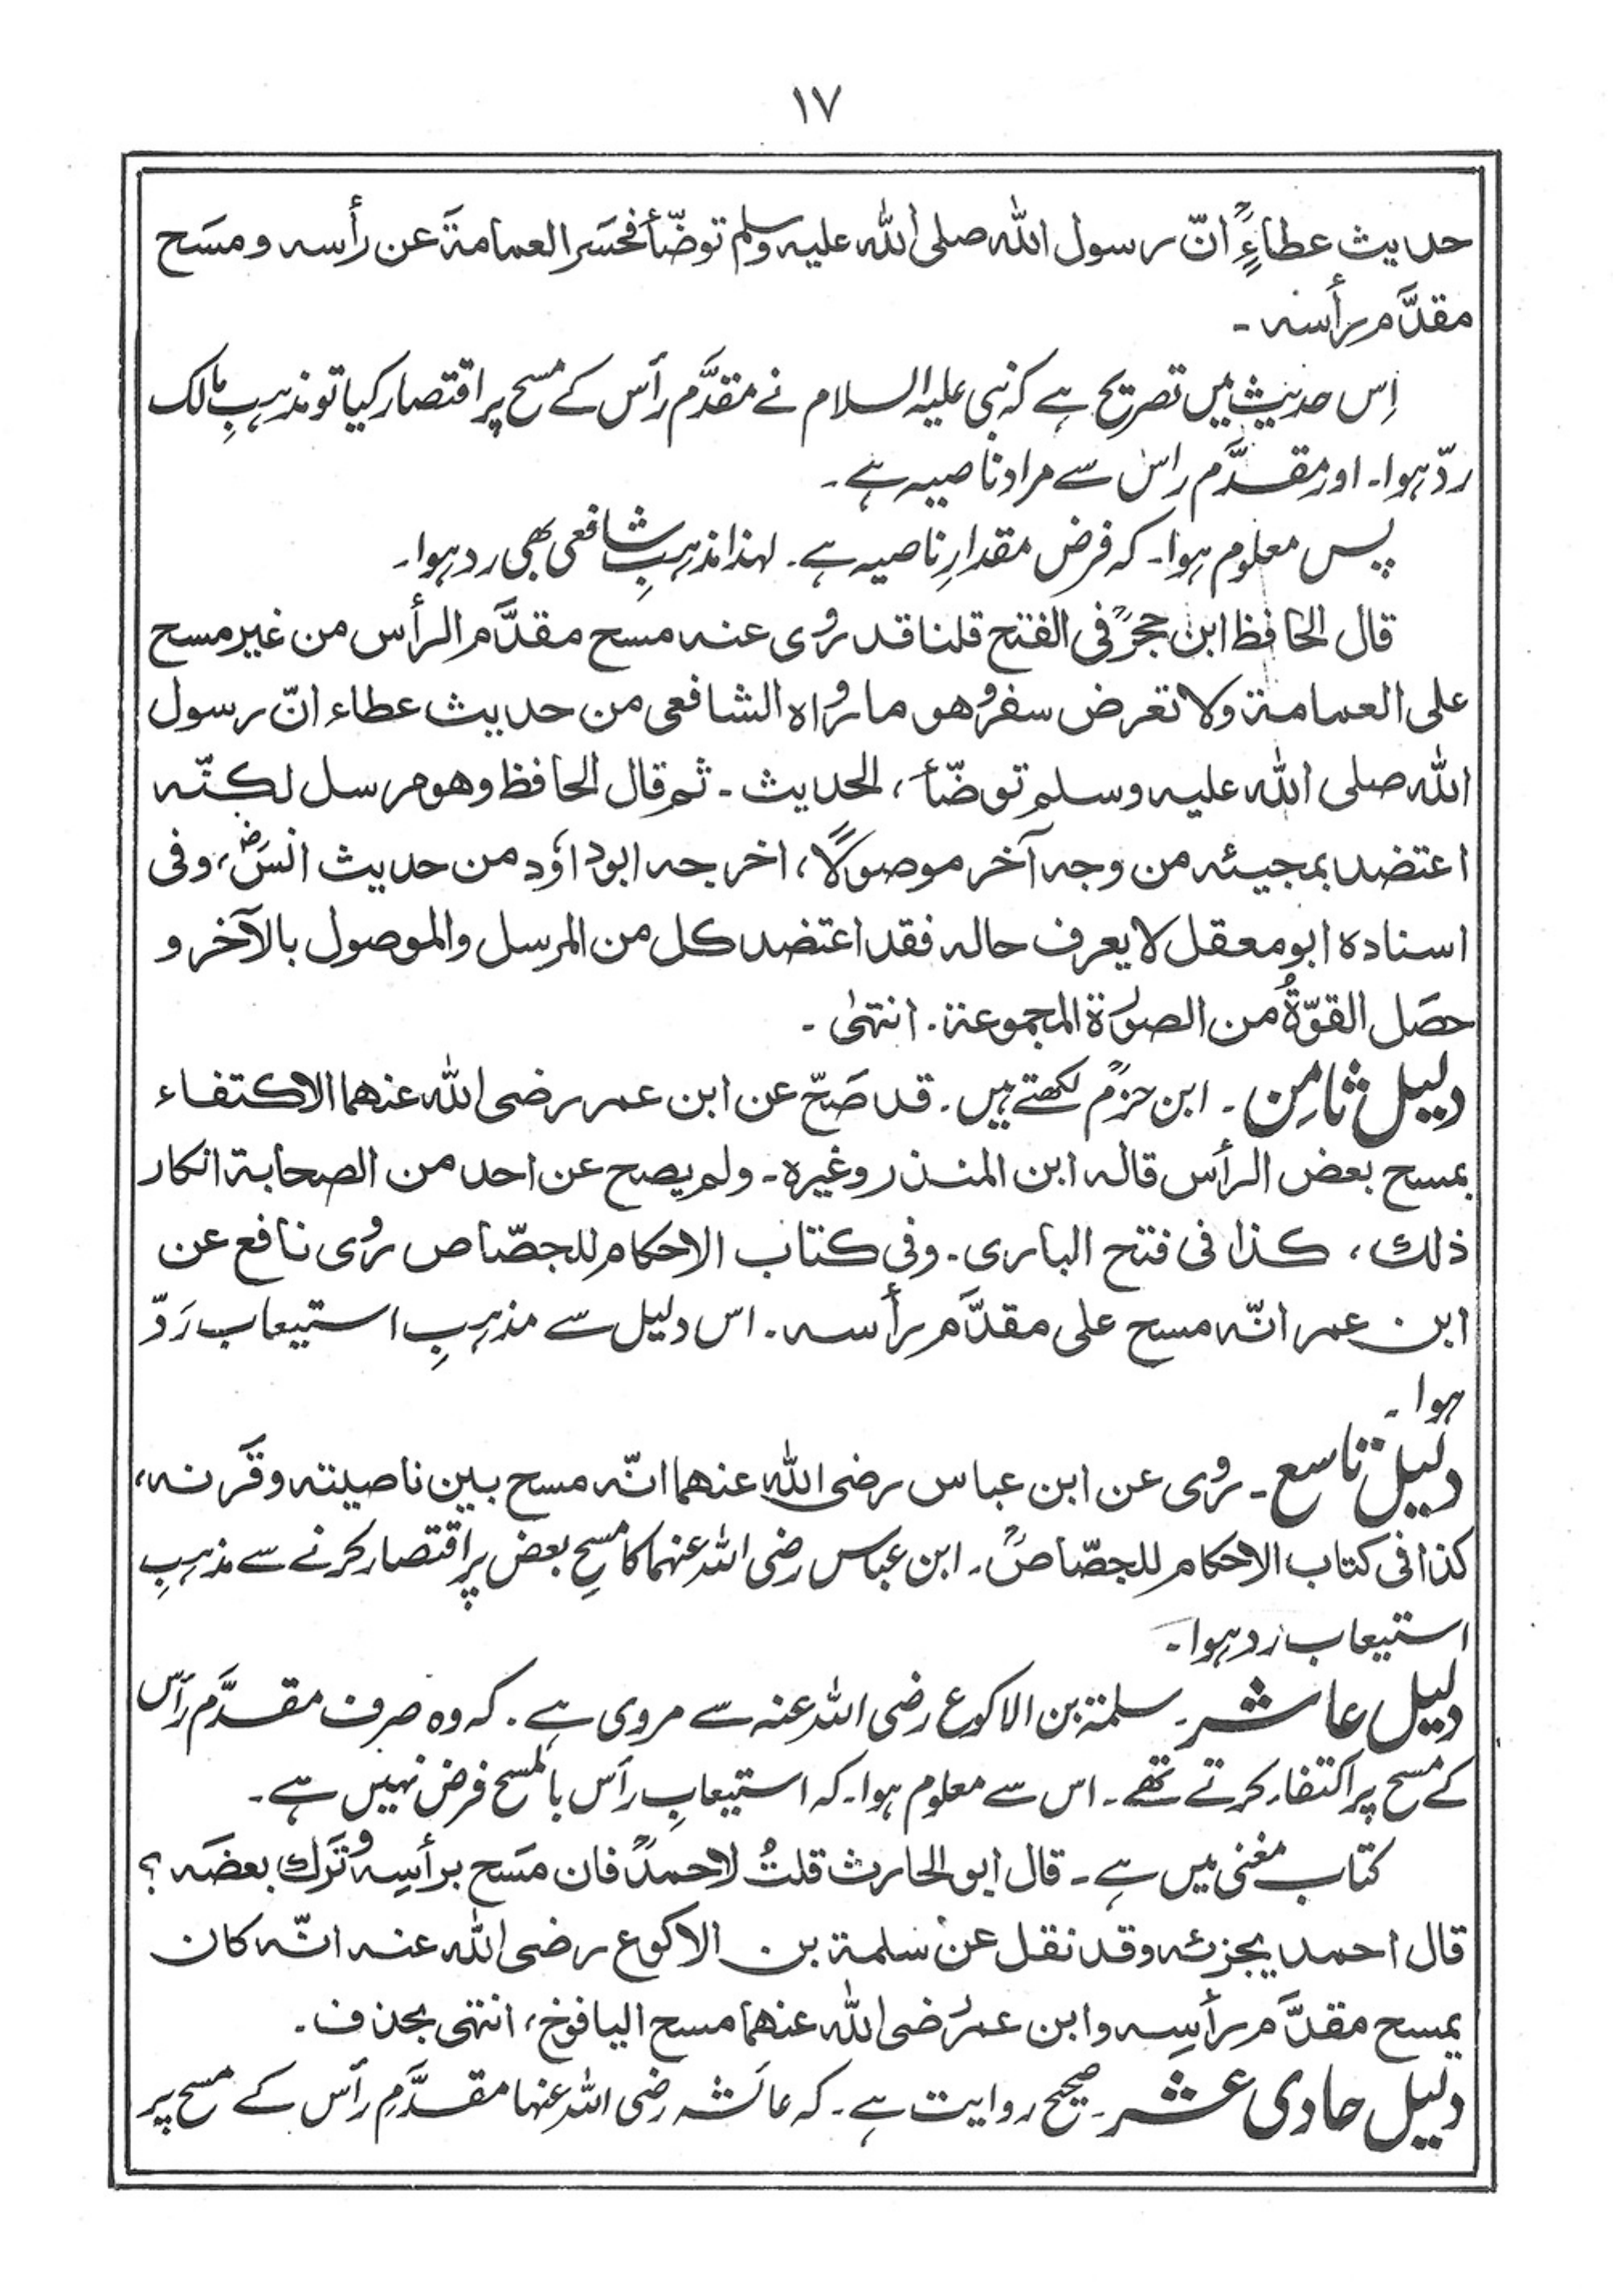 ۱۷
حدیث عطاءٍؒ انّ رسول اللہ صلی اللہ علیہ وسلم توضّأ فحَسَر العمامۃَ عن رأسہ و مسَح
مقدَّم رأسہ ۔
اِس حدیث میں تصریح ہے کہ نبی علیہ السلام نے مقدَّم رأس کے مسح پر اقتصار کیا تو مذہبِ مالک
ردّ ہوا۔ اور مقدَّم راس سے مراد ناصیہ ہے ۔
پس معلوم ہوا۔ کہ فرض مقدارِ ناصیہ ہے۔ لہذا مذہبِ شافعی بھی رد ہوا۔
قال الحافظ ابن حجرؒ فی الفتح قلنا قد رُوی عنہ مسح مقدَّم الرأس من غیر مسح
علی العمامۃ ولا تعرض سفر وھو ما رواہ الشافعی من حدیث عطاء انّ رسول
اللہ صلی اللہ علیہ وسلم توضّأ ، الحدیث ۔ ثم قال الحافظ وھو مرسل لکنّہ
اعتضد بمجیئہ من وجہ آخر موصولًا ، اخرجہ ابوداؤد من حدیث انسؓ ، وفی
اسنادہ ابومعقل لا یعرف حالہ فقد اعتضد کل من المرسل والموصول بالآخر و
حصَل القوّۃُ من الصورۃ المجموعۃ ۔ انتہٰی ۔
دلیل ثامِن ۔ ابن حزمؒ لکھتے ہیں ۔ قد صَحّ عن ابن عمر رضی اللہ عنھما الاکتفاء
بمسح بعض الرأس قالہ ابن المنذر وغیرہ ۔ ولم یصح عن احد من الصحابۃ انکار
ذلك ، کذا فی فتح الباری ۔ وفی کتاب الاحکام للجصّاص رُوی نافع عن
ابن عمر انّہ مسح علی مقدَّم رأسہ ۔ اس دلیل سے مذہبِ استیعاب رَدّ
ہوا ۔
دلیل تاسع ۔ رُوی عن ابن عباس رضی اللہ عنھما انّہ مسح بین ناصیتہ وقَرنہ ،
کذا فی کتاب الاحکام للجصّاصؒ ۔ ابن عباس رضی اللہ عنہما کا مسحِ بعض پر اقتصار کرنے سے مذہبِ
استیعاب رد ہوا ۔
دلیل عاشر ۔ سلمۃ بن الاکوع رضی اللہ عنہ سے مروی ہے ۔ کہ وہ صرف مقدَّم رأس
کے مسح پر اکتفاء کرتے تھے ۔ اس سے معلوم ہوا ۔ کہ استیعابِ رأس بالمسح فرض نہیں ہے ۔
کتاب مغنی میں ہے ۔ قال ابو الحارث قلتُ لاحمدؒ فان مسَح برأسِہ وتَرَك بعضَہ ؟
قال احمد یجزئہ وقد نقل عن سلمۃ بن الاکوع رضی اللہ عنہ انّہ کان
یمسح مقدَّم رأسِہ وابن عمر رضی اللہ عنھما مسح الیافوخ ، انتہی بحذف ۔
دلیل حادی عشر ۔ صحیح روایت ہے ۔ کہ عائشہ رضی اللہ عنہا مقدَّمِ رأس کے مسح پر